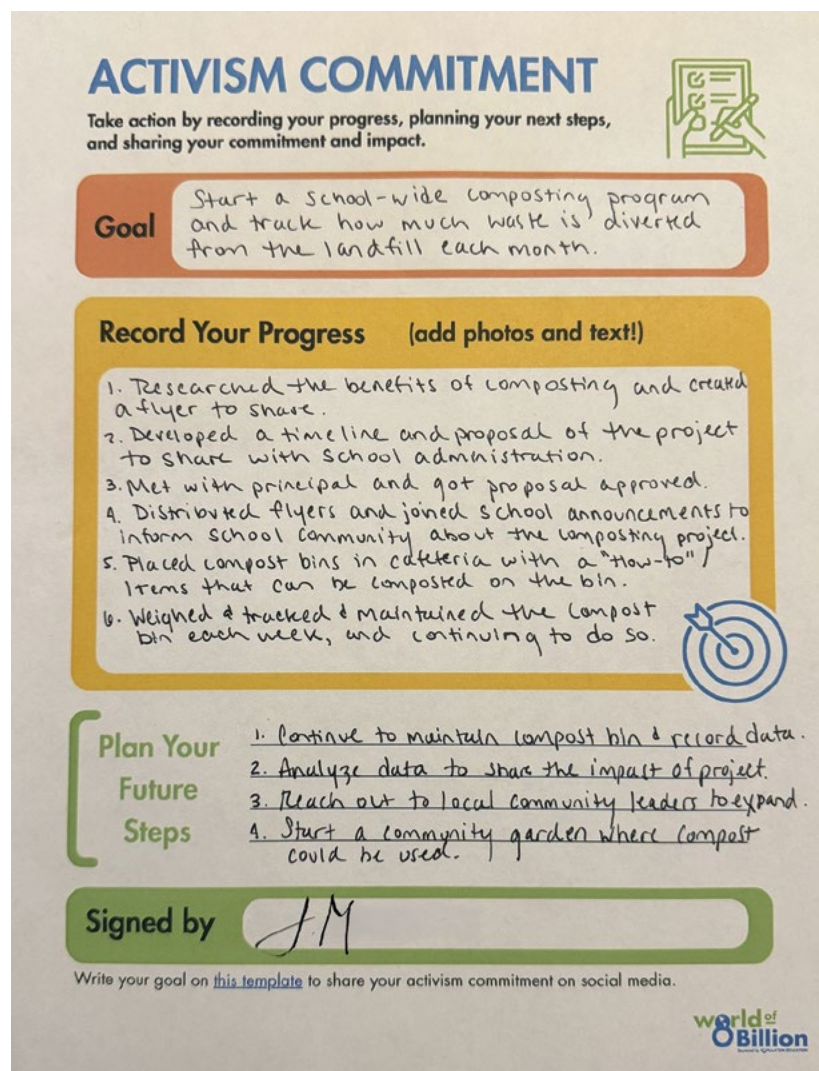 ACTIVISM COMMITMENT
Take action by recording your progress, planning your next steps,
and sharing your commitment and impact.
Goal
Start a school-wide composting program
and track how much waste is diverted
from the landfill each month.
Record Your Progress (add photos and text!)
1. Researched the benefits of composting and created
a flyer to share.
2. Developed a timeline and proposal of the project
to share with school administration.
3. Met with principal and got proposal approved.
4. Distributed flyers and joined school announcements to
inform school community about the composting project.
5. Placed compost bins in cafeteria with a "How-to"/
Items that can be composted on the bin.
6. Weighed & tracked & maintained the compost
bin each week, and continuing to do so.
Plan Your
Future
Steps
1. Continue to maintain compost bin & record data.
2. Analyze data to share the impact of project.
3. Reach out to local community leaders to expand.
4. Start a community garden where compost
could be used.
Signed by
J.M
Write your goal on this template to share your activism commitment on social media.
world of
8 Billion